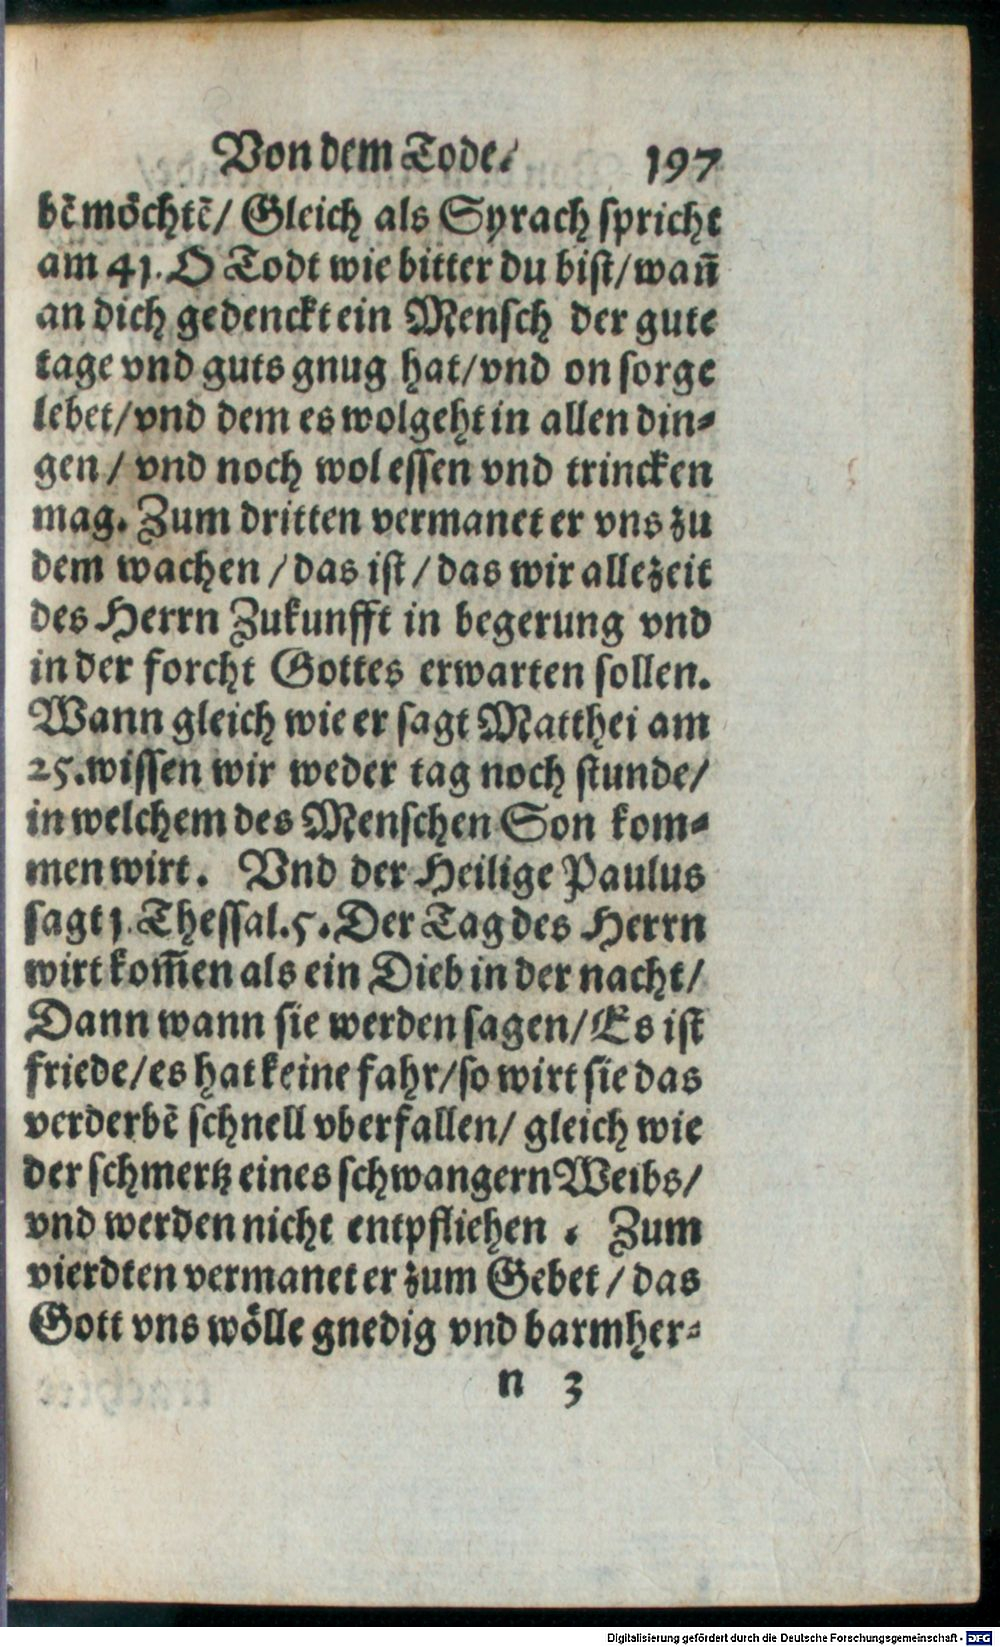 Von dem Tode. 197
bẽ möchtẽ/ Gleich als Syrach spricht
am 41. O Todt wie bitter du bist/ wañ
an dich gedenckt ein Mensch der gute
tage vnd guts gnug hat/ vnd on sorge
lebet/ vnd dem es wolgeht in allen din⸗
gen / vnd noch wol essen vnd trincken
mag. Zum dritten vermanet er vns zu
dem wachen / das ist / das wir allezeit
des Herrn Zukunfft in begerung vnd
in der forcht Gottes erwarten sollen.
Wann gleich wie er sagt Matthei am
25. wissen wir weder tag noch stunde/
in welchem des Menschen Son kom⸗
men wirt. Vnd der Heilige Paulus
sagt 1. Thessal. 5. Der Tag des Herrn
wirt kom̃en als ein Dieb in der nacht/
Dann wann sie werden sagen/ Es ist
friede/ es hat keine fahr/ so wirt sie das
verderbẽ schnell vberfallen/ gleich wie
der schmertz eines schwangern Weibs/
vnd werden nicht entpfliehen . Zum
vierdten vermanet er zum Gebet / das
Gott vns wölle gnedig vnd barmher⸗
n 3
Digitalisierung gefördert durch die Deutsche Forschungsgemeinschaft - DFG